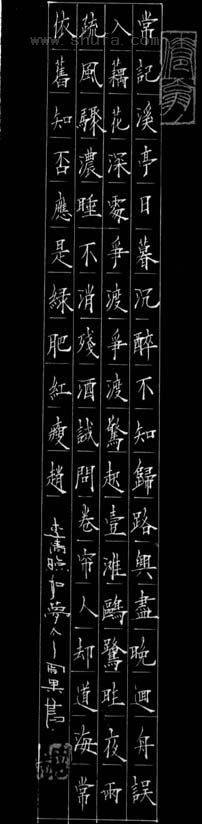 常記溪亭日暮沉醉不知歸路興盡晚迴舟誤
入藕花深處爭渡爭渡驚起壹灘鷗鷺昨夜雨
疏風驟濃睡不消殘酒試問卷帘人却道海常
依舊知否應是綠肥紅瘦趙
李清照如夢令 雨果書